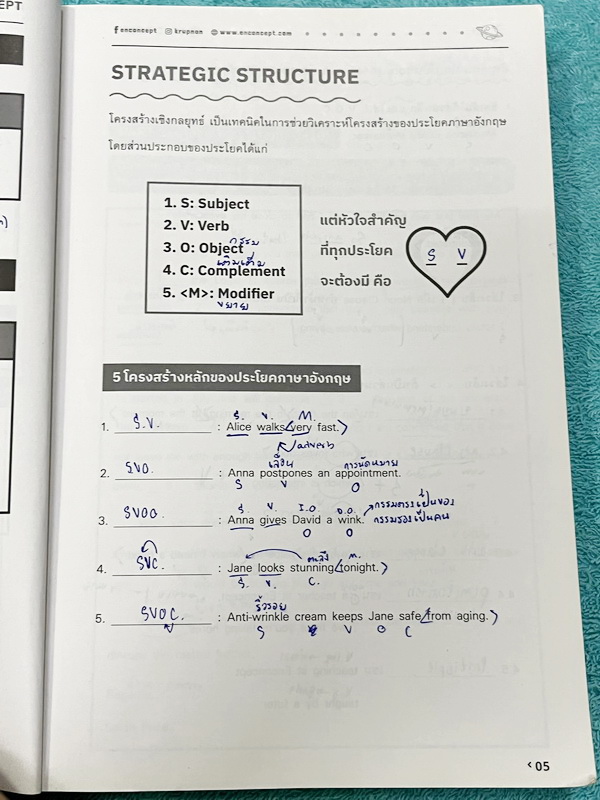 EPT
f enconcept krupnan www.enconcept.com
STRATEGIC STRUCTURE
โครงสร้างเชิงกลยุทธ์ เป็นเทคนิคในการช่วยวิเคราะห์โครงสร้างของประโยคภาษาอังกฤษ
โดยส่วนประกอบของประโยคได้แก่
1. S: Subject
2. V: Verb
3. O: Object
กรรม
4. C: Complement
เติมเต็ม
5. <M>: Modifier
ขยาย
แต่หัวใจสำคัญ
ที่ทุกประโยค
จะต้องมี คือ
S V
5 โครงสร้างหลักของประโยคภาษาอังกฤษ
S. V. M.
1. S.V. : Alice walks <very fast.>
adverb
เลื่อน การนัดหมาย
2. SVO. : Anna postpones an appointment.
S V O
S. V. I.O. D.O. กรรมตรงเป็นของ
3. SVOO. : Anna gives David a wink. กรรมรองเป็นคน
O O
ตะลึง M.
4. SVC. : Jane looks stunning <tonight.>
S. V. C.
ริ้วรอย
5. SVOC. : Anti-wrinkle cream keeps Jane safe <from aging.>
S V O C
‹ 05